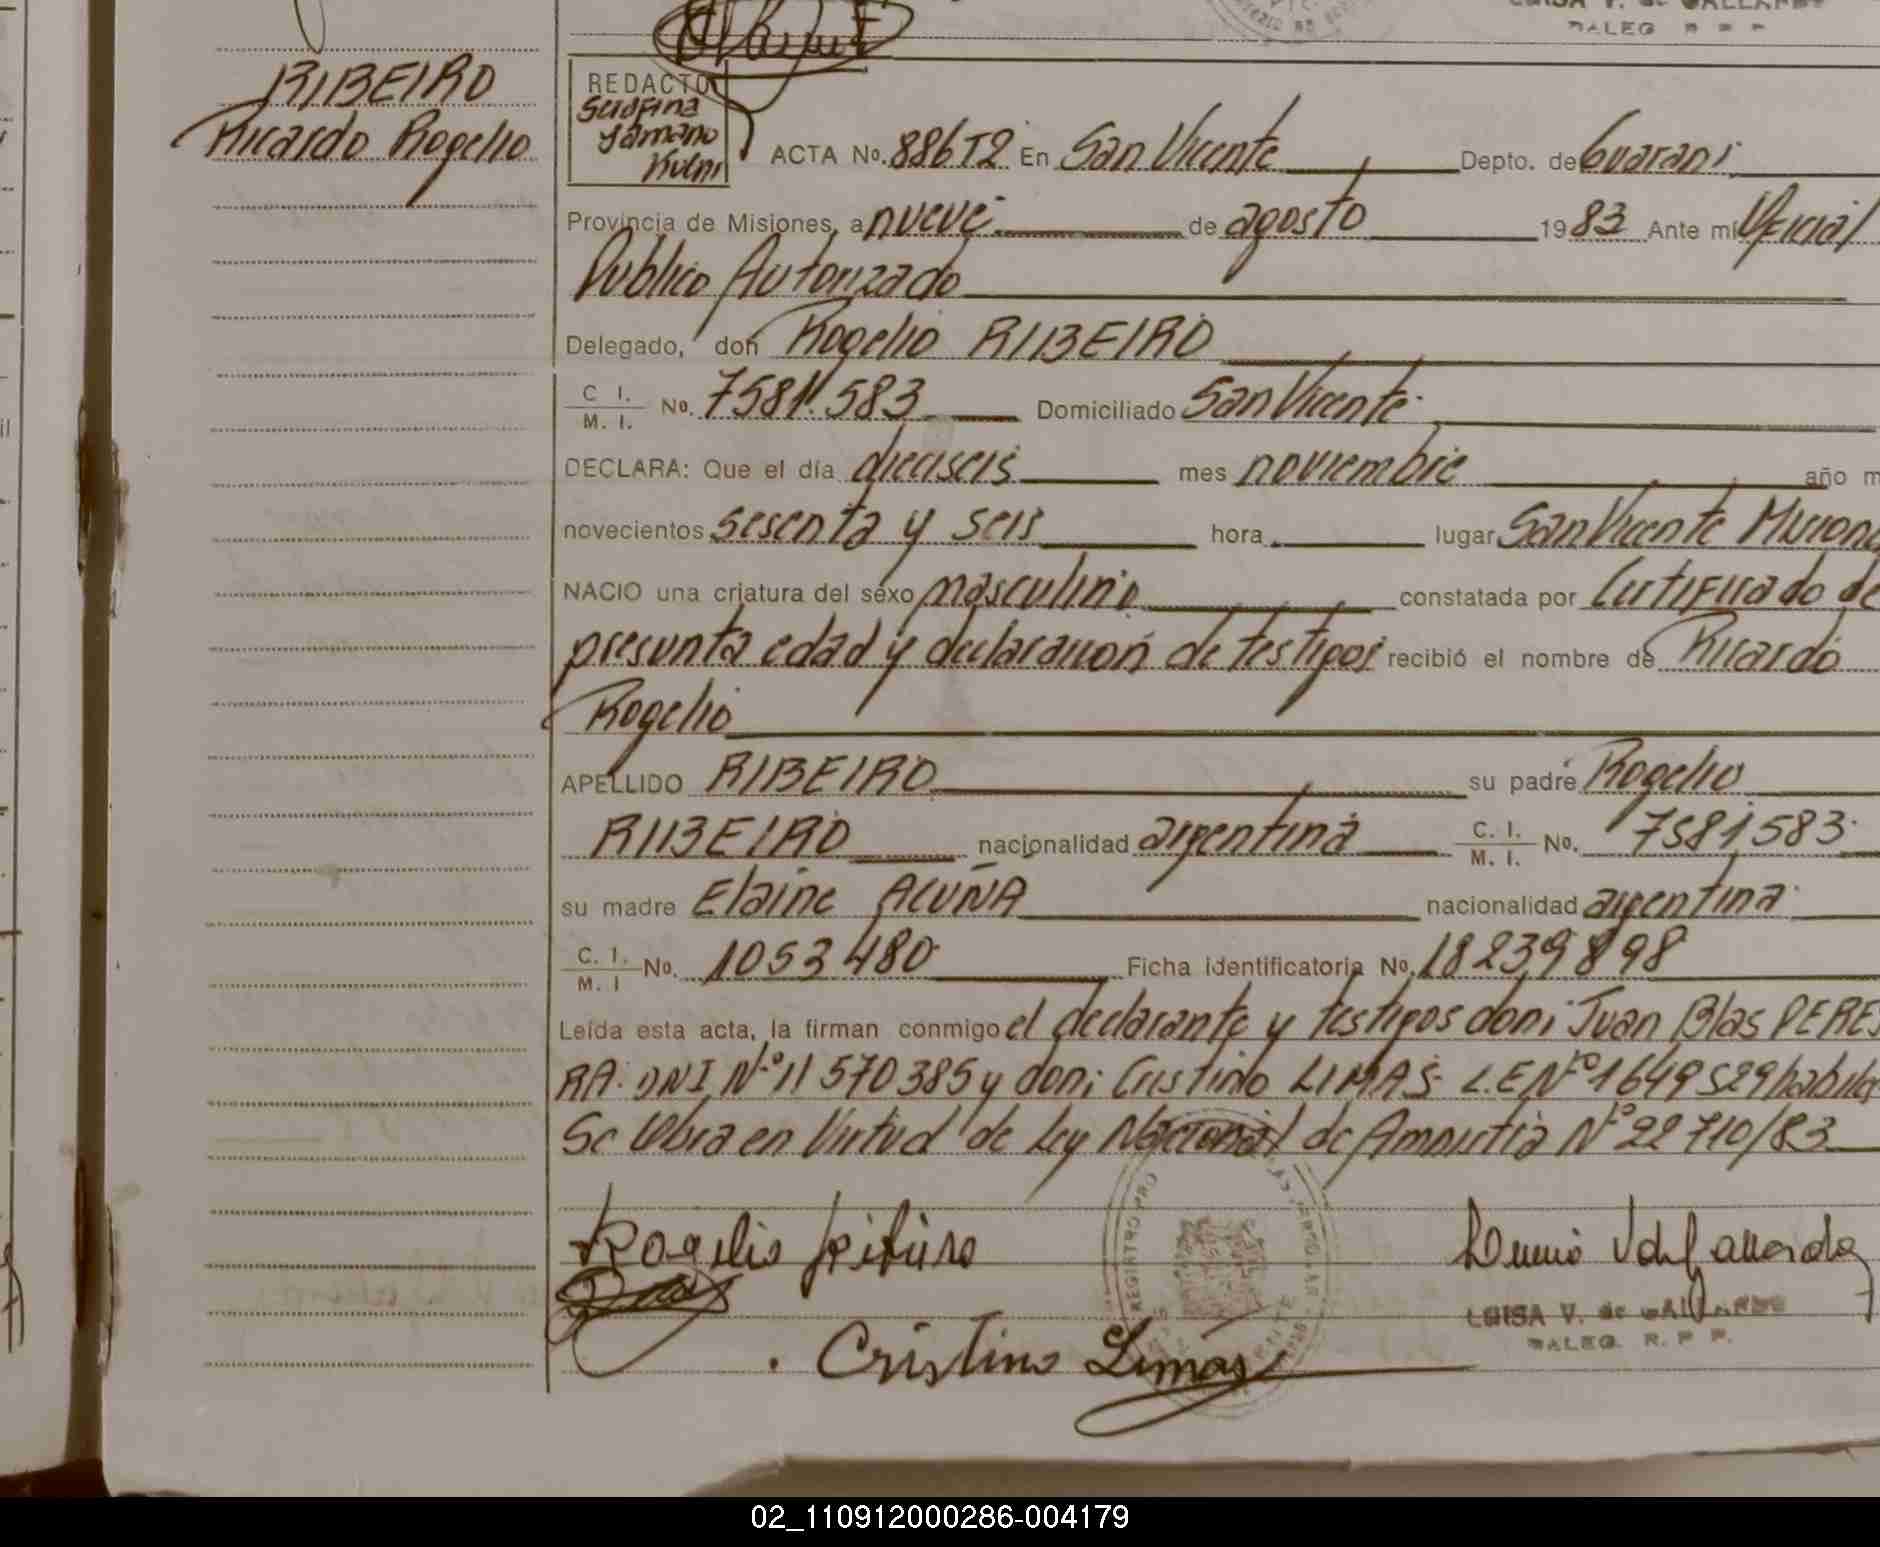 LUISA V. de GALLARDO
DALEG R P P
RIBEIRO
Ricardo Rogelio
REDACTO
Serafina
Yamano
Kueni
ACTA No. 886T2 En San Vicente Depto. de Guarani
Provincia de Misiones, a nueve de agosto 1983 Ante mi Oficial
Publico Autorizado
Delegado, don Rogelio RIBEIRO
C I. M. I. No. 7581.583 Domiciliado San Vicente
DECLARA: Que el día dieciseis mes noviembre año m
novecientos sesenta y seis hora lugar San Vicente Misiones
NACIO una criatura del sexo masculino constatada por Certificado de
presunta edad y declaración de testigos recibió el nombre de Ricardo
Rogelio
APELLIDO RIBEIRO su padre Rogelio
RIBEIRO nacionalidad argentina C. I. M. I. No. 7581583
su madre Elaine ACUÑA nacionalidad argentina
C. I. M. I No. 1053480 Ficha identificatoria No. 18239898
Leída esta acta, la firman conmigo el declarante y testigos don: Juan Blas PEREI
RA. DNI Nº 11570385 y don: Cristino LIMAS. L.E Nº 1649529 habiles
Se labra en Virtud de Ley Nacional de Amnistia Nº 22710/83
Rogelio Ribeiro
Cristino Limas
LUISA V. de GALLARDO
DALEG. R. P P.
REGISTRO PRO
02_110912000286-004179